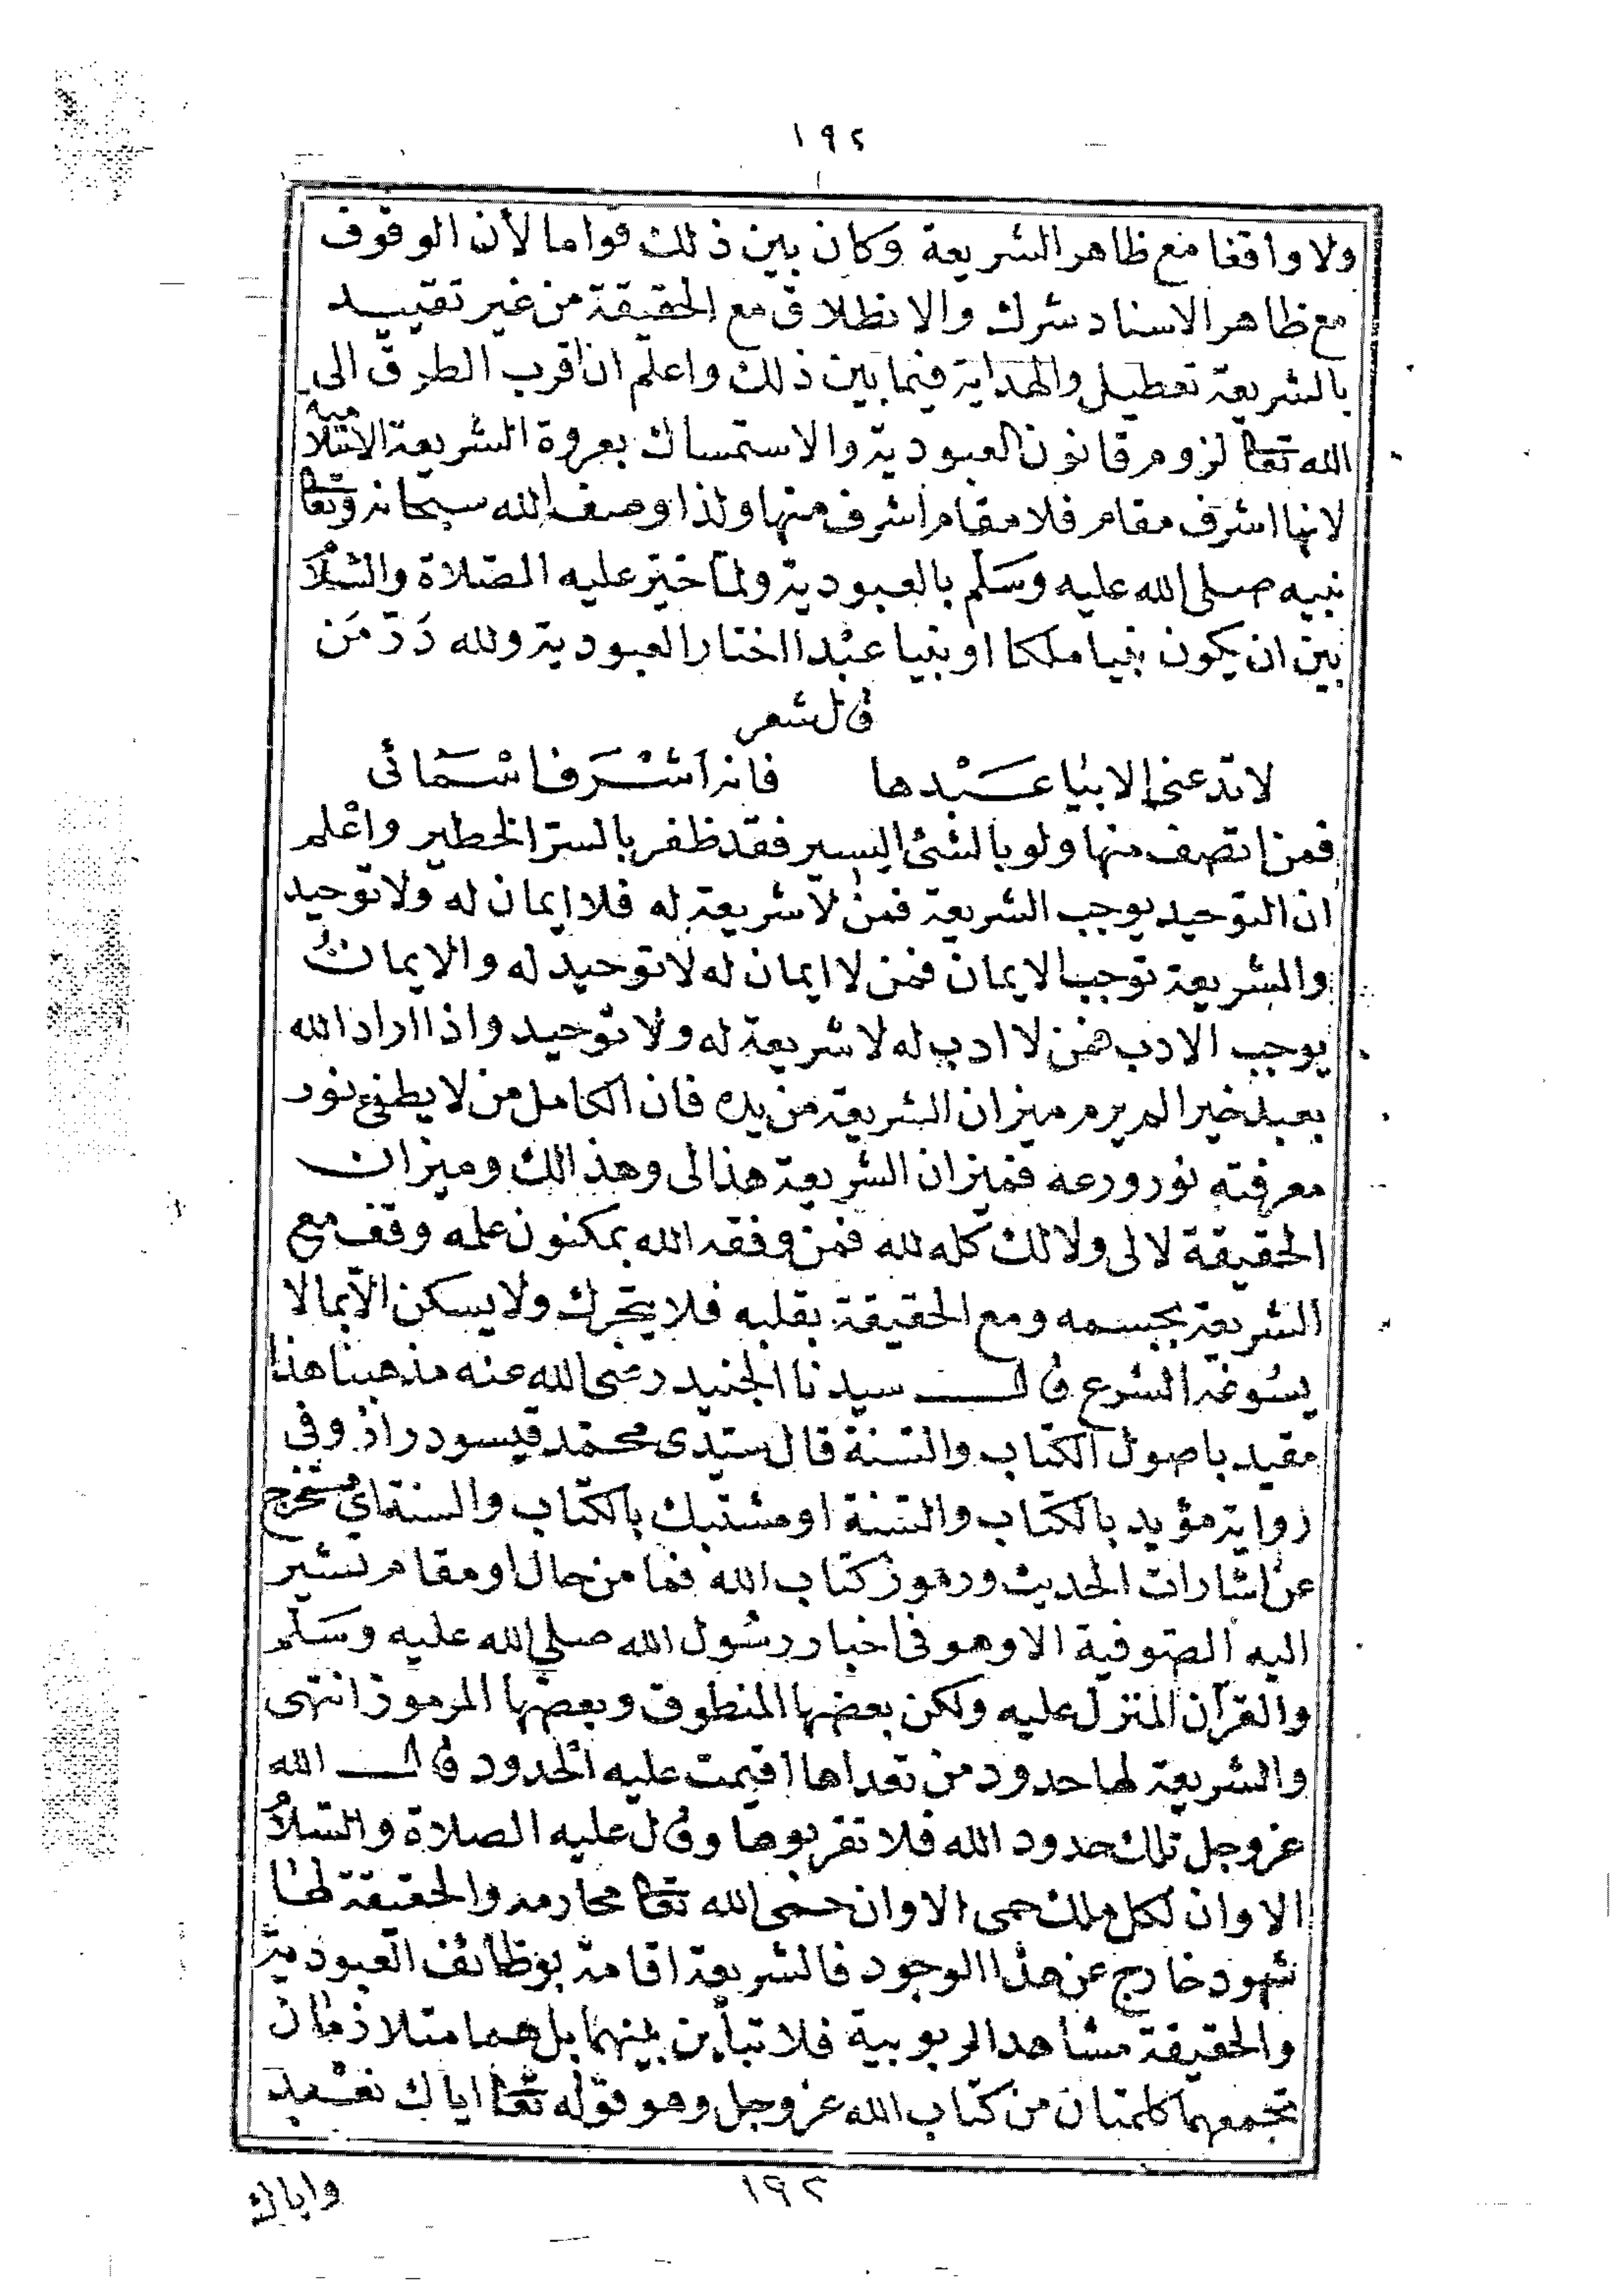 ١٩٢
ولا واقفا مع ظاهر الشريعة وكان بين ذلك قواما لأن الوقوف
مع ظاهر الاسناد شرك والانطلاق مع الحقيقة من غير تقييد
بالشريعة تعطيل والهداية فيما بين ذلك واعلم ان اقرب الطرق الى
الله تعا لزوم قانون العبودية والاستمساك بعروة الشريعة الاسلامية
لانها اشرف مقام فلا مقام اشرف منها ولذا وصف الله سبحانه وتعا
نبيه صلى الله عليه وسَلّم بالعبودية ولمّا خيّر عليه الصّلاة والسّلام
بين ان يكون نبيا ملكا او نبيا عبْدا اختار العبودية ولله دَرّ مَن
قال شعر
لا تدعنى الا بيا عَبْدها فانه اشْرَف اسْمَائى
فمن اتصف منها ولو بالشئ اليسير فقد ظفر بالسرّ الخطير واعْلم
ان التوحيد يوجب الشريعة فمن لا شريعة له فلا ايمان له ولا توحيد
والشريعة توجب الايمان فمن لا ايمان له لا توحيد له والايمانُ
يوجب الادب فمن لا ادب له لا شريعة له ولا توحيد واذا اراد الله
بعبد خيرا لم يرم ميزان الشريعة من يده فان الكامل من لا يطفئ نور
معرفته نور ورعه فميزان الشريعة هذا لى وهذا لك وميزان
الحقيقة لا لى ولا لك كله لله فمن وفقه الله بمكنون علمه وقف مع
الشريعة بجسمه ومع الحقيقة بقلبه فلا يتحرك ولا يسكن الّا بما لا
يسُوغه الشرع قال سيدنا الجنيد رضى الله عنه مذهبنا هذا
مقيد باصول الكتاب والسّنة قال سيّدى محمّد قيسودراز وفى
رواية مؤيد بالكتاب والسّنة او مشتبك بالكتاب والسنة اى مستخرج
عن اشارات الحديث ورموز كتاب الله فما من حال او مقام تشير
اليه الصّوفية الا وهو فى اخبار رسُول الله صلى الله عليه وسَلّم
والقرآن المنزل عليه ولكن بعضها المنطوق وبعضها المرموز انتهى
والشريعة لها حدود من تعداها اقيمت عليه الحدود قال الله
عز وجل تلك حدود الله فلا تقربوها وقال عليه الصلاة والسّلامُ
الا وان لكل ملك حمى الا وان حمى الله تعا محارمه والحقيقة لها
شهود خارج عن هذا الوجود فالشريعة اقامة بوظائف العبودية
والحقيقة مشاهد الربوبية فلا تبأين بينهما بل هما متلازمان
تجمعهما كلمتان من كتاب الله عز وجل وهو قوله تعا اياك نعْبد
١٩٢
واياك